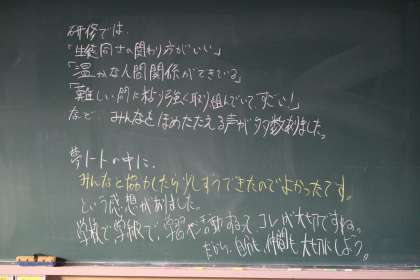 研修では、
「生徒同士の関わり方がいい」
「温かな人間関係ができている」
「難しい問に粘り強く取り組んでいて、すごい！」
など、みんなをほめたたえる声が多数ありました。
ノートの中に、
みんなと協力したら少しずつできたのでよかったです。
という感想がありました。
学校で、学校で、学習や活動 コレが大切ですね。
だから、自分も、仲間も大切にしよう。